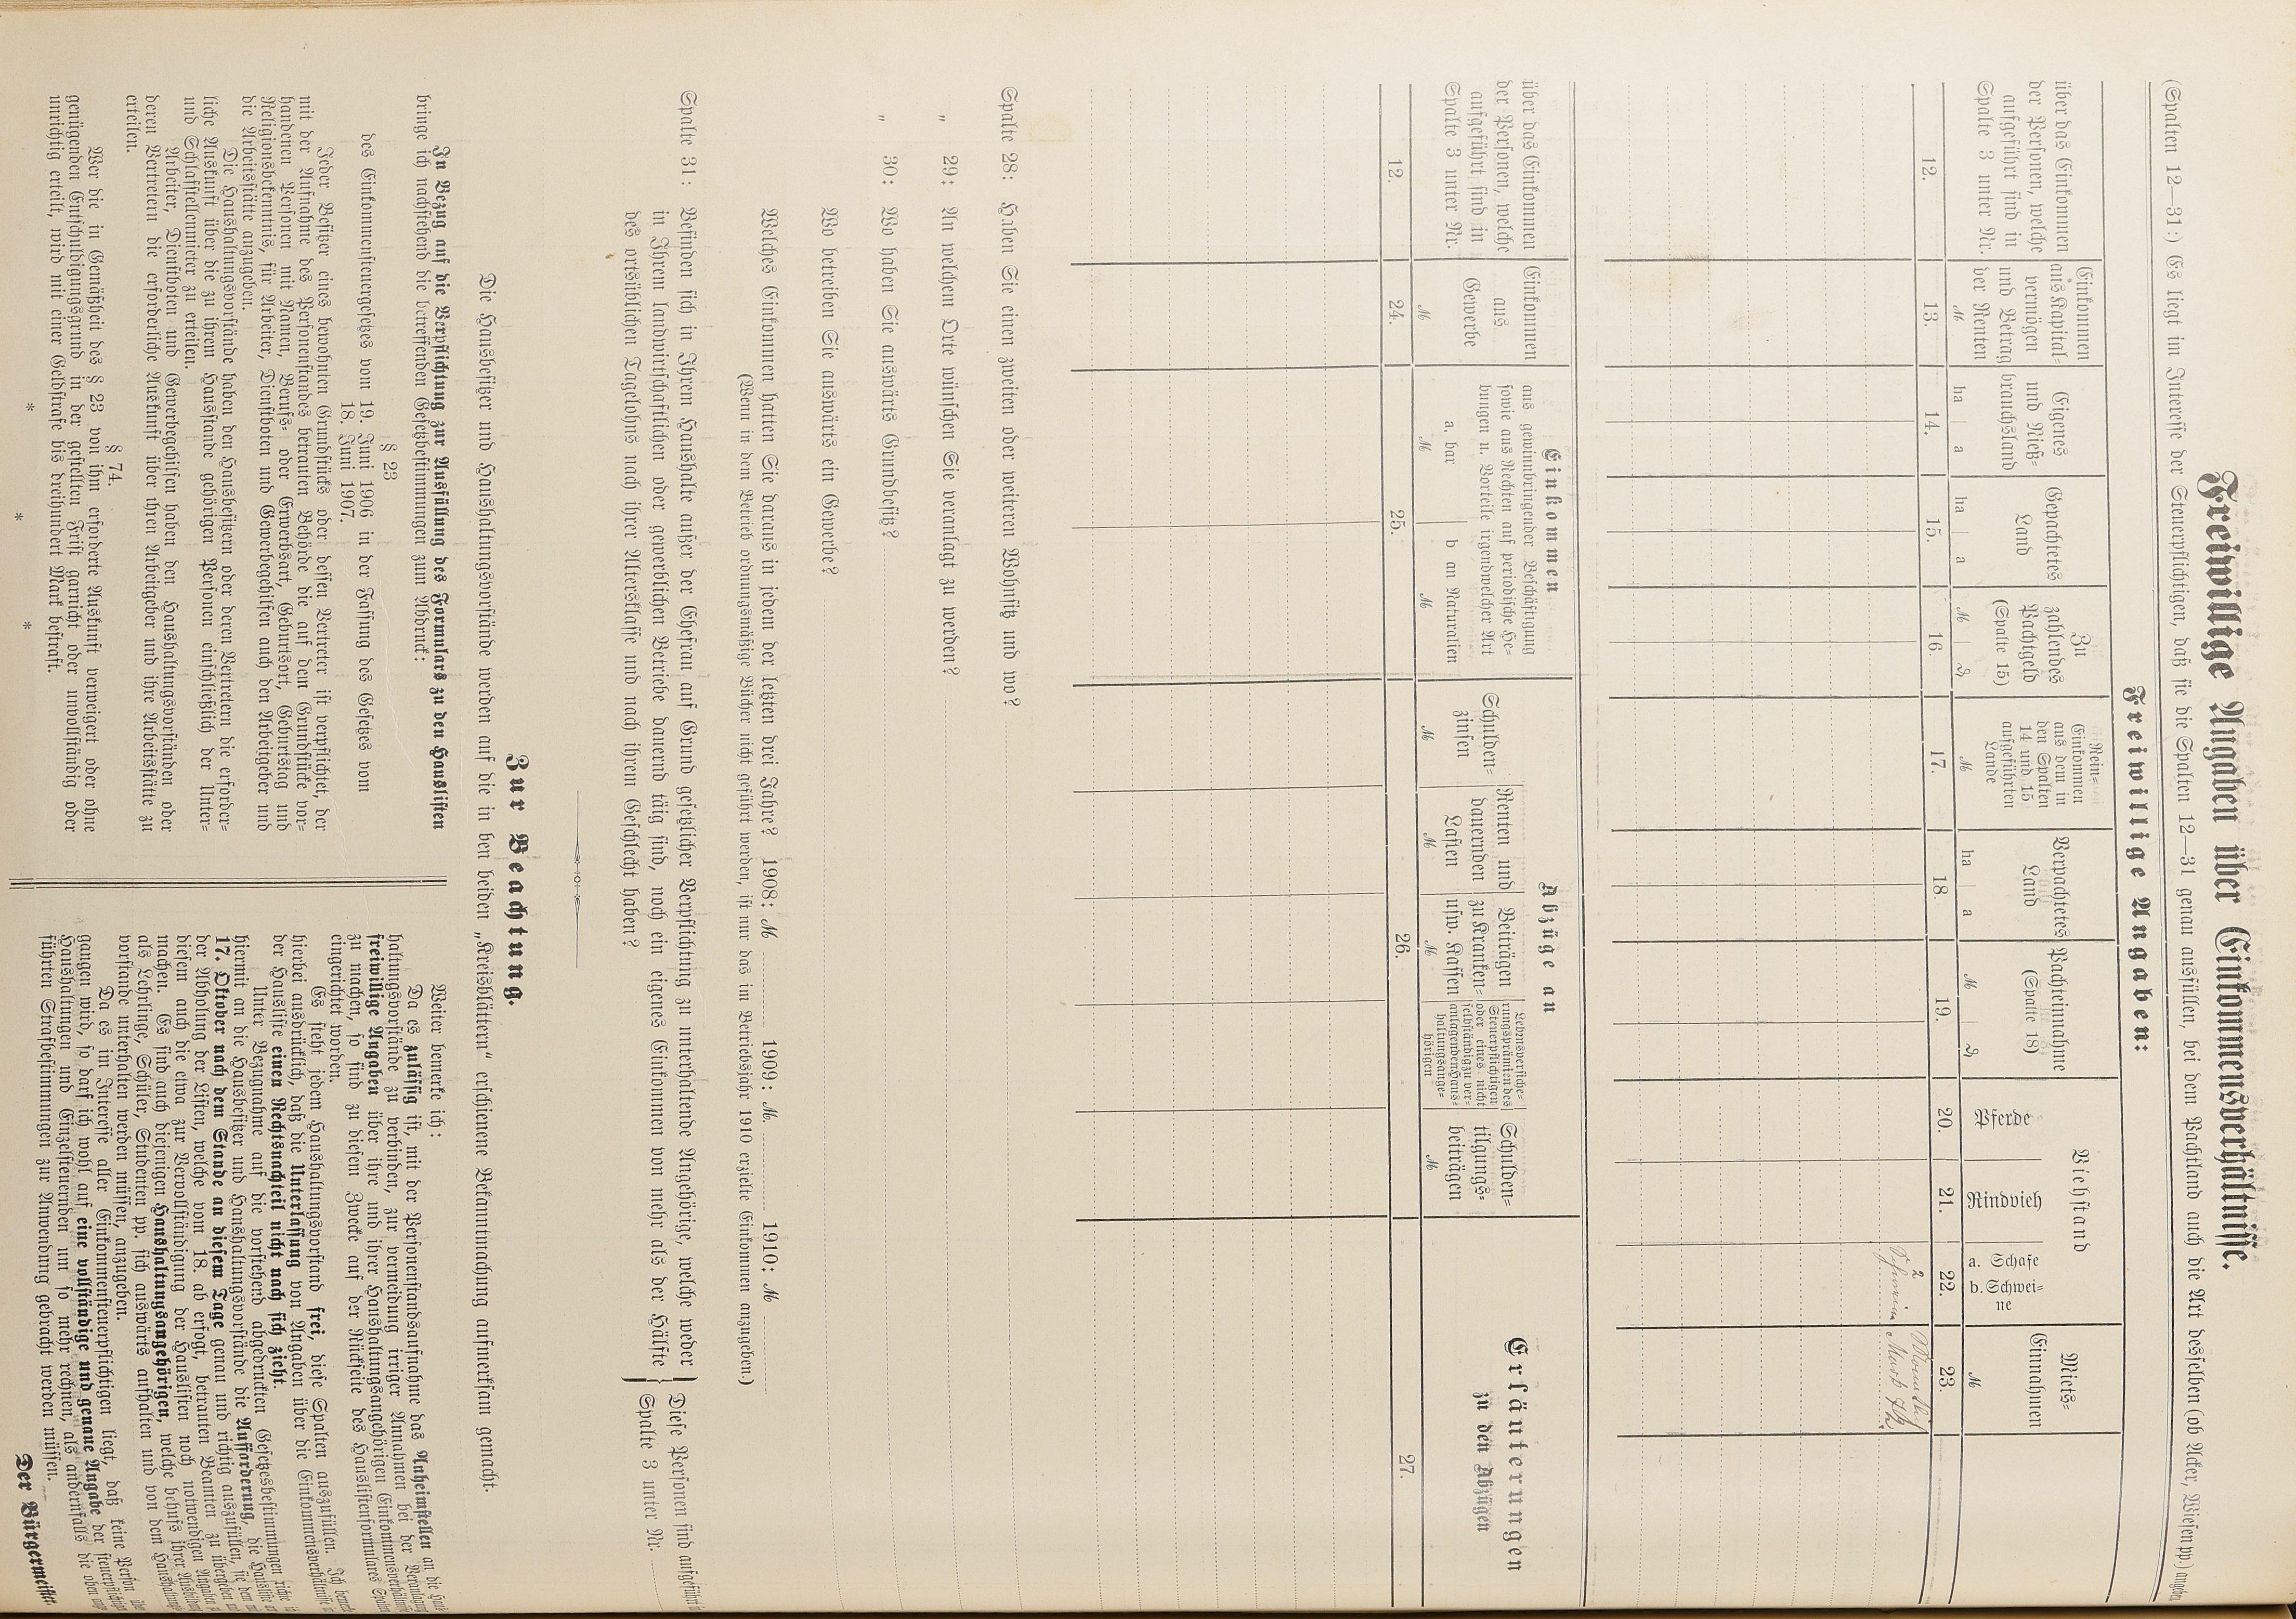 Freiwillige Angaben über Einkommensverhältnisse.
(Spalten 12—31:) Es liegt im Interesse der Steuerpflichtigen, daß sie die Spalten 12—31 genau ausfüllen, bei dem Pachtland auch die Art desselben (ob Acker, Wiesen pp.) angeben
Freiwillige Angaben:
über das Einkommen
der Personen, welche
aufgeführt sind in
Spalte 3 unter Nr.
Einkommen
aus Kapital-
vermögen
und Betrag
der Renten
ℳ
Eigenes
und Nieß-
brauchsland
ha a
Gepachtetes
Land
ha a
Zu
zahlendes
Pachtgeld
(Spalte 15)
ℳ ₰
Rein-
Einkommen
aus dem in
den Spalten
14 und 15
aufgeführten
Lande
ℳ
Verpachtetes
Land
ha a
Pachteinnahme
(Spalte 18)
ℳ ₰
Viehstand
Pferde
Rindvieh
a. Schafe
b. Schwei-
ne
Miets-
Einnahmen
ℳ
12. 13. 14. 15. 16. 17. 18. 19. 20. 21. 22. 23.
2
über das Einkommen
der Personen, welche
aufgeführt sind in
Spalte 3 unter Nr.
Einkommen
Einkommen
aus
Gewerbe
ℳ
aus gewinnbringender Beschäftigung
sowie aus Rechten auf periodische He-
bungen u. Vorteile irgendwelcher Art
a. bar
ℳ
b an Naturalien
ℳ
Abzüge an
Schulden-
zinsen
ℳ
Renten und
dauernden
Lasten
ℳ
Beiträgen
zu Kranken-
usw. Kassen
ℳ
Lebensversiche-
rungsprämien des
Steuerpflichtigen
oder eines nicht
selbständig zu ver-
anlagenden Haus-
haltungsange-
hörigen
Schulden-
tilgungs-
beiträgen
ℳ
Erläuterungen
zu den Abzügen
12. 24. 25. 26. 27.
Spalte 28: Haben Sie einen zweiten oder weiteren Wohnsitz und wo?
„ 29: An welchem Orte wünschen Sie veranlagt zu werden?
„ 30: Wo haben Sie auswärts Grundbesitz?
Wo betreiben Sie auswärts ein Gewerbe?
Welches Einkommen hatten Sie daraus in jedem der letzten drei Jahre? 1908: ℳ 1909: ℳ 1910: ℳ
(Wenn in dem Betrieb ordnungsmäßige Bücher nicht geführt werden, ist nur das im Betriebsjahr 1910 erzielte Einkommen anzugeben.)
Spalte 31: Befinden sich in Ihrem Haushalte außer der Ehefrau auf Grund gesetzlicher Verpflichtung zu unterhaltende Angehörige, welche weder
in Ihrem landwirtschaftlichen oder gewerblichen Betriebe dauernd tätig sind, noch ein eigenes Einkommen von mehr als der Hälfte
des ortsüblichen Tagelohns nach ihrer Altersklasse und nach ihrem Geschlecht haben?
Diese Personen sind aufgeführt in
Spalte 3 unter Nr.
Zur Beachtung.
Die Hausbesitzer und Haushaltungsvorstände werden auf die in den beiden „Kreisblättern“ erschienene Bekanntmachung aufmerksam gemacht.
In Bezug auf die Verpflichtung zur Ausfüllung des Formulars zu den Hauslisten
bringe ich nachstehend die betreffenden Gesetzbestimmungen zum Abdruck:
§ 23
des Einkommensteuergesetzes vom 19. Juni 1906 in der Fassung des Gesetzes vom
18. Juni 1907.
Jeder Besitzer eines bewohnten Grundstücks oder dessen Vertreter ist verpflichtet, der
mit der Aufnahme des Personenstandes betrauten Behörde die auf dem Grundstücke vor-
handenen Personen mit Namen, Berufs- oder Erwerbsart, Geburtsort, Geburtstag und
Religionsbekenntnis, für Arbeiter, Dienstboten und Gewerbegehilfen auch den Arbeitgeber und
die Arbeitsstätte anzugeben.
Die Haushaltungsvorstände haben den Hausbesitzern oder deren Vertretern die erforder-
liche Auskunft über die zu ihrem Hausstande gehörigen Personen einschließlich der Unter-
und Schlafstellenmieter zu erteilen.
Arbeiter, Dienstboten und Gewerbegehilfen haben den Haushaltungsvorständen oder
deren Vertretern die erforderliche Auskunft über ihren Arbeitgeber und ihre Arbeitsstätte zu
erteilen.
§ 74.
Wer die in Gemäßheit des § 23 von ihm erforderte Auskunft verweigert oder ohne
genügenden Entschuldigungsgrund in der gestellten Frist garnicht oder unvollständig oder
unrichtig erteilt, wird mit einer Geldstrafe bis dreihundert Mark bestraft.
* * *
Weiter bemerke ich:
Da es zulässig ist, mit der Personenstandsaufnahme das Anheimstellen an die Haus-
haltungsvorstände zu verbinden, zur Vermeidung irriger Annahmen bei der Veranlagung
freiwillige Angaben über ihre und ihrer Haushaltungsangehörigen Einkommensverhältnisse
zu machen, so sind zu diesem Zwecke auf der Rückseite des Hauslistenformulares Spalten
eingerichtet worden.
Es steht jedem Haushaltungsvorstand frei, diese Spalten auszufüllen. Ich bemerke
hierbei ausdrücklich, daß die Unterlassung von Angaben über die Einkommensverhältnisse in
der Hausliste einen Rechtsnachteil nicht nach sich zieht.
Unter Bezugnahme auf die vorstehend abgedruckten Gesetzesbestimmungen richte ich
hiermit an die Hausbesitzer und Haushaltungsvorstände die Aufforderung, die Hausliste
17. Oktober nach dem Stande an diesem Tage genau und richtig auszufüllen, sie dem mit
der Abholung der Listen, welche vom 18. ab erfolgt, betrauten Beamten zu übergeben und
diesem auch die etwa zur Vervollständigung der Hauslisten noch notwendigen Angaben zu
machen. Es sind auch diejenigen Haushaltungsangehörigen, welche behufs ihrer Ausbildung
als Lehrlinge, Schüler, Studenten pp. sich auswärts aufhalten und von dem Haushaltungs-
vorstande unterhalten werden müssen, anzugeben.
Da es im Interesse aller Einkommensteuerpflichtigen liegt, daß keine Person über-
gangen wird, so darf ich wohl auf eine vollständige und genaue Angabe der steuerpflichtigen
Haushaltungen und Einzelsteuernden um so mehr rechnen, als andernfalls die oben ange-
führten Strafbestimmungen zur Anwendung gebracht werden müssen.
Der Bürgermeister.